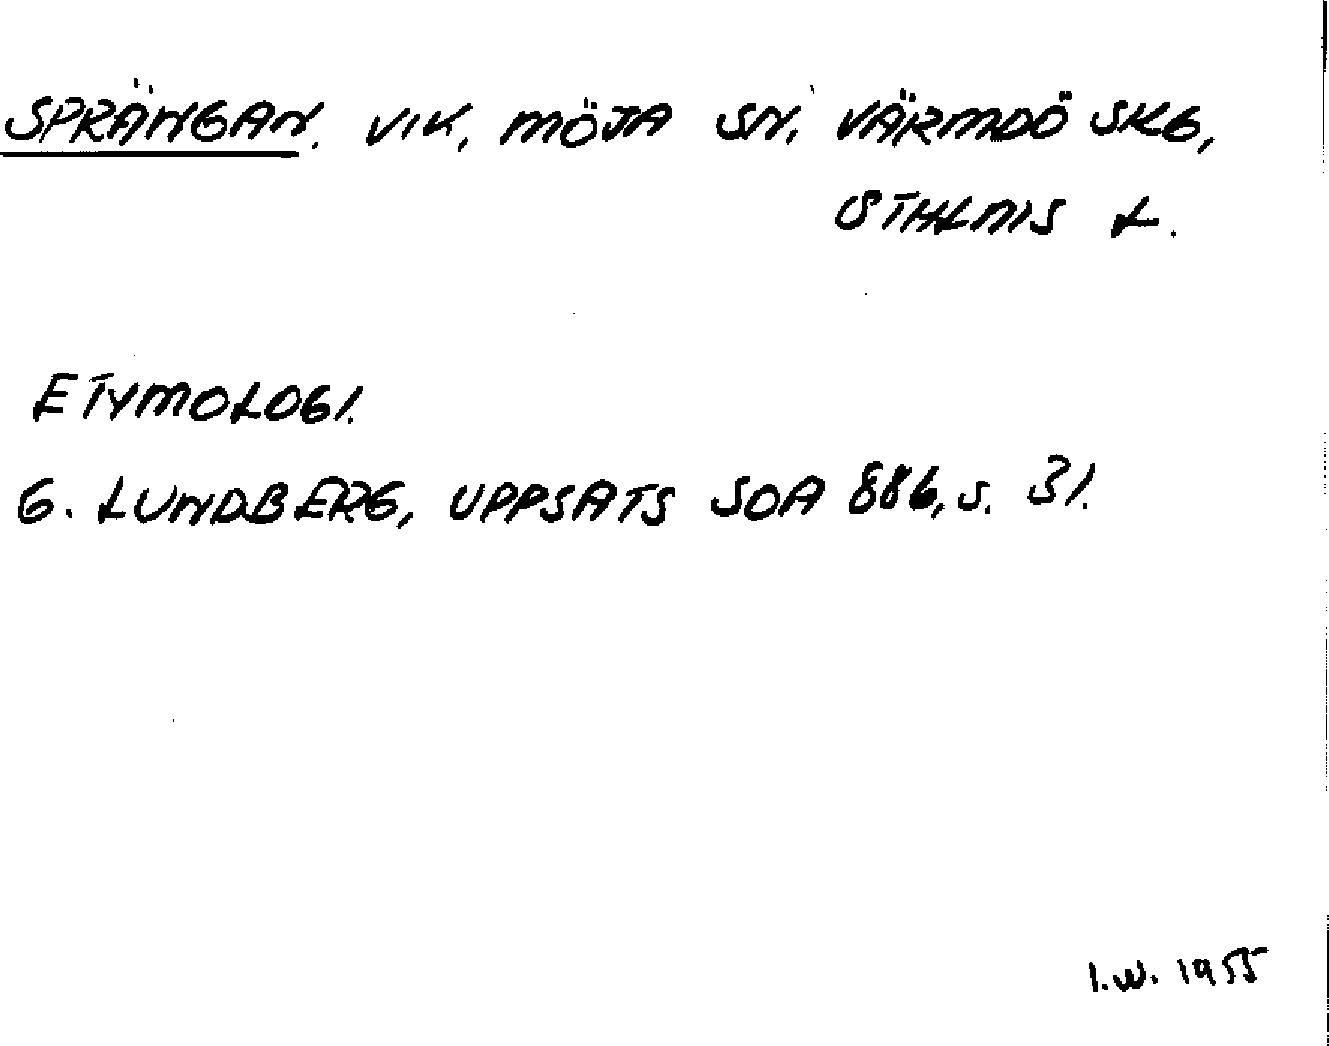 SPRÄNGAN. VIK, MÖJA SN, VÄRMDÖ SKG,
STHLMS L.
ETYMOLOGI.
G. LUNDBERG, UPPSATS SOA 886, S. 31.
I.W. 1955